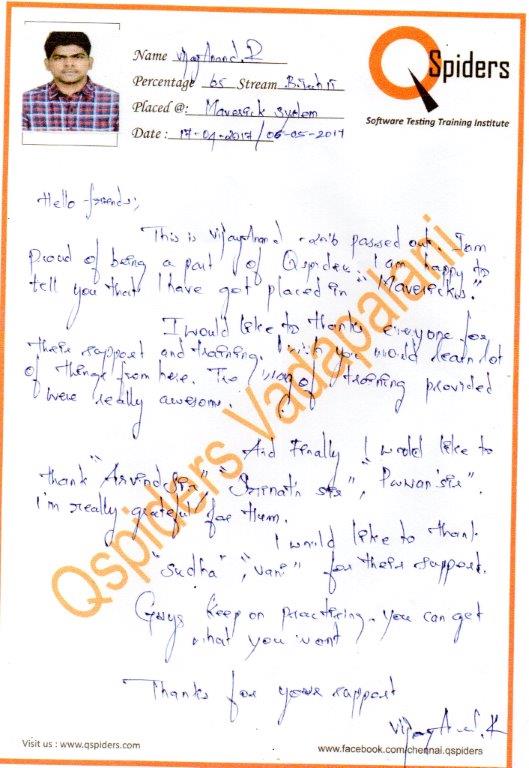 Name Vijay Anand. R
Percentage 65 Stream B.tech IT
Placed @: Maverick System
Date : 17-04-2017 / 06-05-2017
QSpiders
Software Testing Training Institute
Hello friends;
This is VijayAnand 2016 passed out. I am
Proud of being a part of Qspiders. I am happy to
tell you that I have got placed in "Mavericks."
I would like to thank everyone for
their support and training. I wish you would learn lot
of things from here. The way of training provided
were really awesome.
And Finally I would like to
thank "Arvind Sir", "Srinath sir", "Pawan sir".
I'm really grateful for them.
I would like to thank
"Sudha", "Vani" for their support.
Guys keep on practicing. you can get
what you want
Thanks for your support
Vijay Anand. R
Qspiders Vadapalani
Visit us : www.qspiders.com
www.facebook.com/chennai.qspiders